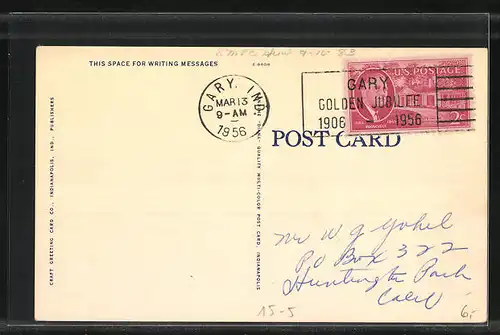 THIS SPACE FOR WRITING MESSAGES
GARY, IND.
MAR 13
9-AM
1956
GARY
GOLDEN JUBILEE
1906 - 1956
U.S. POSTAGE
ROOSEVELT
2¢
POST CARD
CRAFT GREETING CARD CO., INDIANAPOLIS, IND., PUBLISHERS
QUALITY MULTI-COLOR POST CARD, INDIANAPOLIS
Mr W G Yohel
PO Box 322
Huntington Park
Calif
15-5
6,-